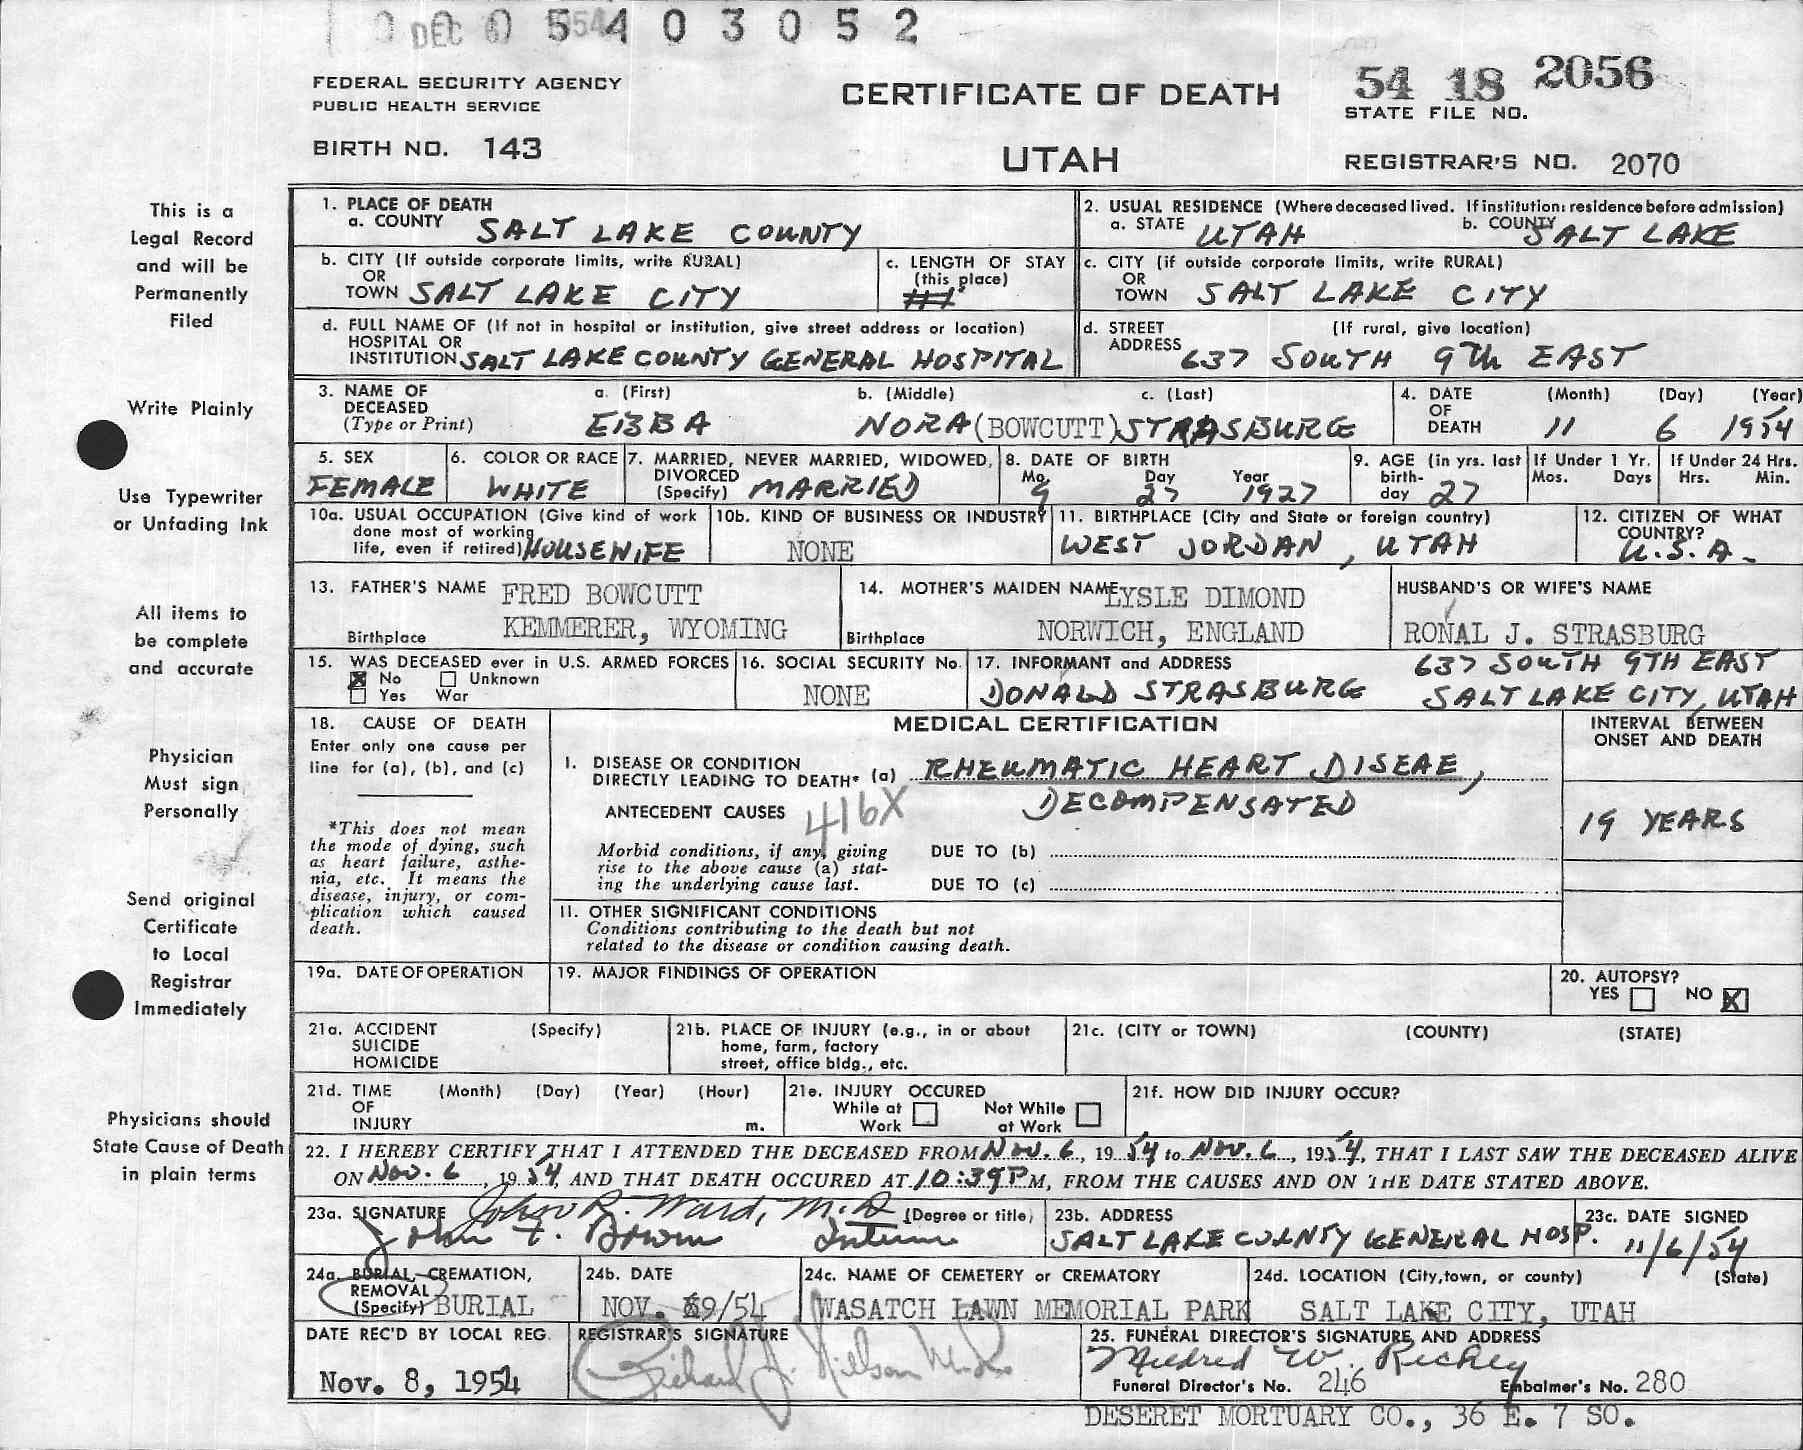 0 0 0 5 4 0 3 0 5 2
DEC 6 1954
FEDERAL SECURITY AGENCY
PUBLIC HEALTH SERVICE
BIRTH NO. 143
CERTIFICATE OF DEATH
UTAH
54 18 2056
STATE FILE NO.
REGISTRAR'S NO. 2070
This is a
Legal Record
and will be
Permanently
Filed
Write Plainly
Use Typewriter
or Unfading Ink
All items to
be complete
and accurate
Physician
Must sign
Personally
Send original
Certificate
to Local
Registrar
Immediately
Physicians should
State Cause of Death
in plain terms
1. PLACE OF DEATH
a. COUNTY SALT LAKE COUNTY
2. USUAL RESIDENCE (Where deceased lived. If institution: residence before admission)
a. STATE UTAH b. COUNTY SALT LAKE
b. CITY (If outside corporate limits, write RURAL)
OR
TOWN SALT LAKE CITY
c. LENGTH OF STAY
(this place)
c. CITY (if outside corporate limits, write RURAL)
OR
TOWN SALT LAKE CITY
d. FULL NAME OF (If not in hospital or institution, give street address or location)
HOSPITAL OR
INSTITUTION SALT LAKE COUNTY GENERAL HOSPITAL
d. STREET (If rural, give location)
ADDRESS 637 SOUTH 9th EAST
3. NAME OF a. (First) b. (Middle) c. (Last)
DECEASED
(Type or Print) EBBA NORA (BOWCUTT) STRASBURGE
4. DATE (Month) (Day) (Year)
OF
DEATH 11 6 1954
5. SEX
FEMALE
6. COLOR OR RACE
WHITE
7. MARRIED, NEVER MARRIED, WIDOWED,
DIVORCED
(Specify) MARRIED
8. DATE OF BIRTH
Mo. Day Year
9 27 1927
9. AGE (in yrs. last
birth-
day 27
If Under 1 Yr.
Mos. Days
If Under 24 Hrs.
Hrs. Min.
10a. USUAL OCCUPATION (Give kind of work
done most of working
life, even if retired) HOUSEWIFE
10b. KIND OF BUSINESS OR INDUSTRY
NONE
11. BIRTHPLACE (City and State or foreign country)
WEST JORDAN, UTAH
12. CITIZEN OF WHAT
COUNTRY?
U.S.A.
13. FATHER'S NAME FRED BOWCUTT
Birthplace KEMMERER, WYOMING
14. MOTHER'S MAIDEN NAME LYSLE DIMOND
Birthplace NORWICH, ENGLAND
HUSBAND'S OR WIFE'S NAME
RONAL J. STRASBURG
15. WAS DECEASED ever in U.S. ARMED FORCES
No Unknown
Yes War
16. SOCIAL SECURITY No.
NONE
17. INFORMANT and ADDRESS 637 SOUTH 9TH EAST
DONALD STRASBURGE SALT LAKE CITY, UTAH
18. CAUSE OF DEATH
Enter only one cause per
line for (a), (b), and (c)
*This does not mean
the mode of dying, such
as heart failure, asthe-
nia, etc. It means the
disease, injury, or com-
plication which caused
death.
MEDICAL CERTIFICATION
INTERVAL BETWEEN
ONSET AND DEATH
I. DISEASE OR CONDITION
DIRECTLY LEADING TO DEATH* (a) RHEUMATIC HEART DISEAE,
DECOMPENSATED
19 YEARS
ANTECEDENT CAUSES 416X
Morbid conditions, if any, giving
rise to the above cause (a) stat-
ing the underlying cause last.
DUE TO (b)
DUE TO (c)
II. OTHER SIGNIFICANT CONDITIONS
Conditions contributing to the death but not
related to the disease or condition causing death.
19a. DATE OF OPERATION
19. MAJOR FINDINGS OF OPERATION
20. AUTOPSY?
YES NO X
21a. ACCIDENT (Specify)
SUICIDE
HOMICIDE
21b. PLACE OF INJURY (e.g., in or about
home, farm, factory
street, office bldg., etc.
21c. (CITY or TOWN) (COUNTY) (STATE)
21d. TIME (Month) (Day) (Year) (Hour)
OF
INJURY m.
21e. INJURY OCCURED
While at Not While
Work at Work
21f. HOW DID INJURY OCCUR?
22. I HEREBY CERTIFY THAT I ATTENDED THE DECEASED FROM NOV. 6, 1954 to NOV. 6, 1954, THAT I LAST SAW THE DECEASED ALIVE
ON NOV. 6, 1954, AND THAT DEATH OCCURED AT 10:39 P M, FROM THE CAUSES AND ON THE DATE STATED ABOVE.
23a. SIGNATURE John R. Ward, M.D. (Degree or title)
John F. Bowen Intern
23b. ADDRESS
SALT LAKE COUNTY GENERAL HOSP.
23c. DATE SIGNED
11/6/54
24a. BURIAL, CREMATION,
REMOVAL
(Specify) BURIAL
24b. DATE
NOV. 9/54
24c. NAME OF CEMETERY or CREMATORY
WASATCH LAWN MEMORIAL PARK
24d. LOCATION (City, town, or county) (State)
SALT LAKE CITY, UTAH
DATE REC'D BY LOCAL REG.
Nov. 8, 1954
REGISTRAR'S SIGNATURE
Richard J. Nielson
25. FUNERAL DIRECTOR'S SIGNATURE AND ADDRESS
Mildred W. Richey
Funeral Director's No. 246 Embalmer's No. 280
DESERET MORTUARY CO., 36 E. 7 SO.